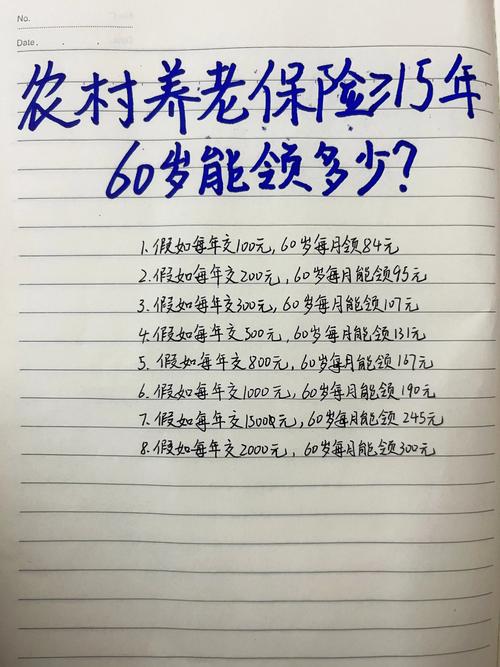 No.
Date.
农村养老保险≥15年
60岁能领多少?
1.假如每年交100元,60岁每月领84元
2.假如每年交200元,60岁每月能领95元
3.假如每年交300元,60岁每月能领107元
4.假如每年交500元,60岁每月能领131元
5.假如每年交800元,60岁每月能领167元
6.假如每年交1000元,60岁每月能领190元
7.假如每年交1500元,60岁每月能领245元
8.假如每年交2000元,60岁每月能领300元